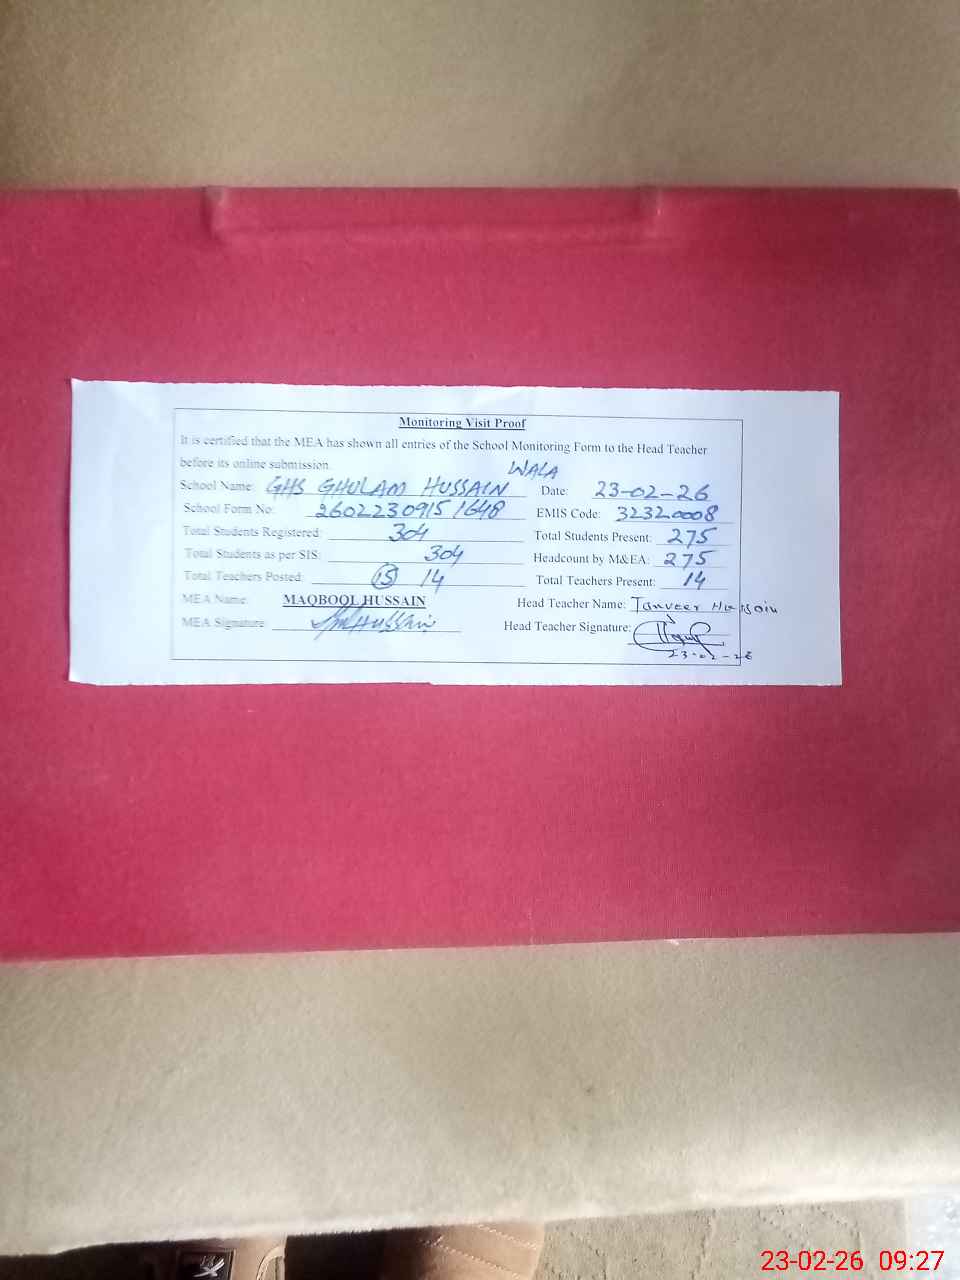 Monitoring Visit Proof
It is certified that the MEA has shown all entries of the School Monitoring Form to the Head Teacher
before its online submission.
School Name: GHS GHULAM HUSSAIN WALA Date: 23-02-26
School Form No: 2602230915 1648 EMIS Code: 32320008
Total Students Registered: 304 Total Students Present: 275
Total Students as per SIS: 304 Headcount by M&EA: 275
Total Teachers Posted: 15 14 Total Teachers Present: 14
MEA Name: MAQBOOL HUSSAIN Head Teacher Name: Tanveer Hussain
MEA Signature: Hussain Head Teacher Signature:
23-02-26
23-02-26 09:27